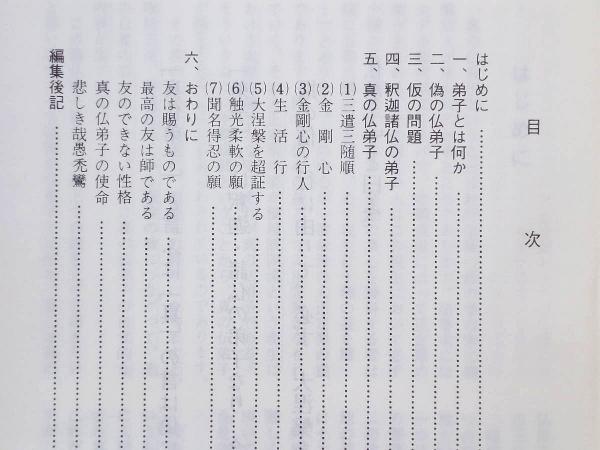 目次
はじめに
一、弟子とは何か
二、偽の仏弟子
三、仮の問題
四、釈迦諸仏の弟子
五、真の仏弟子
(1)三遣三随順
(2)金剛心
(3)金剛心の行人
(4)生活行
(5)大涅槃を超証する
(6)触光柔軟の願
(7)聞名得忍の願
六、おわりに
友は賜うものである
最高の友は師である
友のできない性格
真の仏弟子の使命
悲しき哉愚禿鸞
編集後記